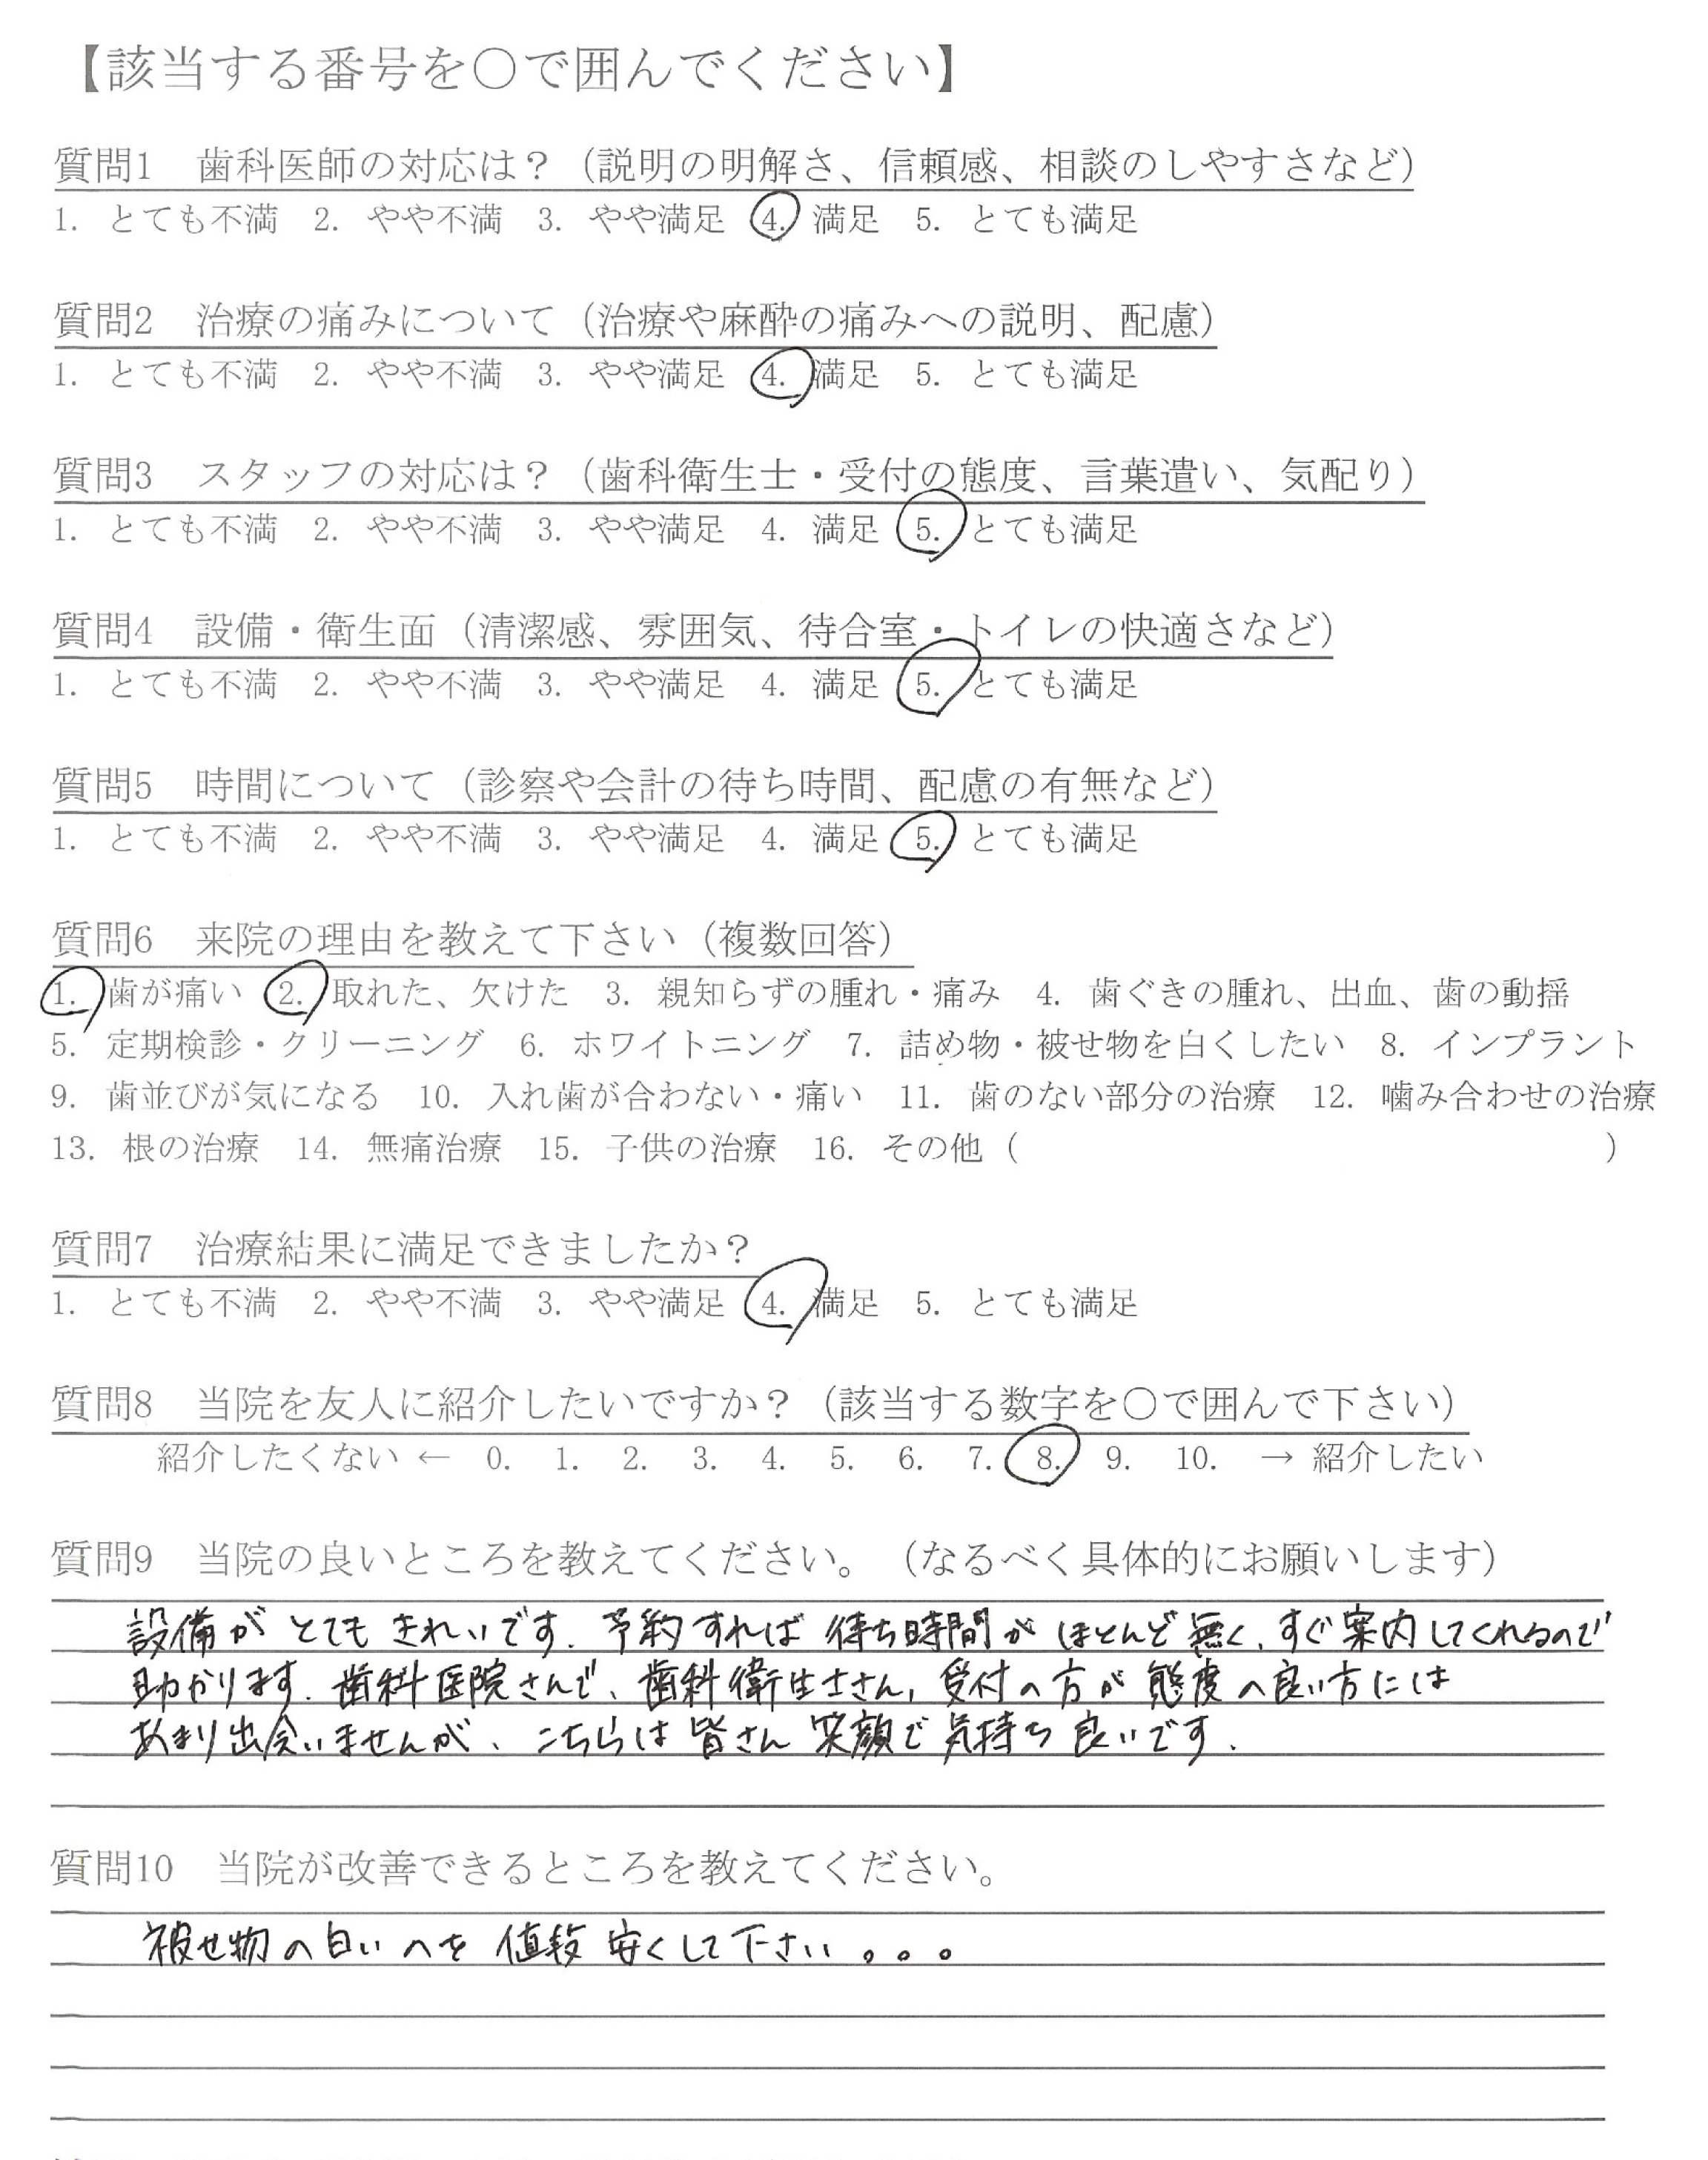 【該当する番号を〇で囲んでください】
質問1　歯科医師の対応は？（説明の明解さ、信頼感、相談のしやすさなど）
1. とても不満　2. やや不満　3. やや満足　4. 満足　5. とても満足
質問2　治療の痛みについて（治療や麻酔の痛みへの説明、配慮）
1. とても不満　2. やや不満　3. やや満足　4. 満足　5. とても満足
質問3　スタッフの対応は？（歯科衛生士・受付の態度、言葉遣い、気配り）
1. とても不満　2. やや不満　3. やや満足　4. 満足　5. とても満足
質問4　設備・衛生面（清潔感、雰囲気、待合室・トイレの快適さなど）
1. とても不満　2. やや不満　3. やや満足　4. 満足　5. とても満足
質問5　時間について（診察や会計の待ち時間、配慮の有無など）
1. とても不満　2. やや不満　3. やや満足　4. 満足　5. とても満足
質問6　来院の理由を教えて下さい（複数回答）
1. 歯が痛い　2. 取れた、欠けた　3. 親知らずの腫れ・痛み　4. 歯ぐきの腫れ、出血、歯の動揺
5. 定期検診・クリーニング　6. ホワイトニング　7. 詰め物・被せ物を白くしたい　8. インプラント
9. 歯並びが気になる　10. 入れ歯が合わない・痛い　11. 歯のない部分の治療　12. 噛み合わせの治療
13. 根の治療　14. 無痛治療　15. 子供の治療　16. その他（　　　　　　　　　）
質問7　治療結果に満足できましたか？
1. とても不満　2. やや不満　3. やや満足　4. 満足　5. とても満足
質問8　当院を友人に紹介したいですか？（該当する数字を〇で囲んで下さい）
紹介したくない ← 0. 1. 2. 3. 4. 5. 6. 7. 8. 9. 10. → 紹介したい
質問9　当院の良いところを教えてください。（なるべく具体的にお願いします）
設備がとてもきれいです。予約すれば待ち時間がほとんど無く、すぐ案内してくれるので
助かります。歯科医院さんで、歯科衛生士さん、受付の方が態度の良い方には
あまり出会いませんが、こちらは皆さん笑顔で気持ち良いです。
質問10　当院が改善できるところを教えてください。
被せ物の白いのを値段安くして下さい。。。